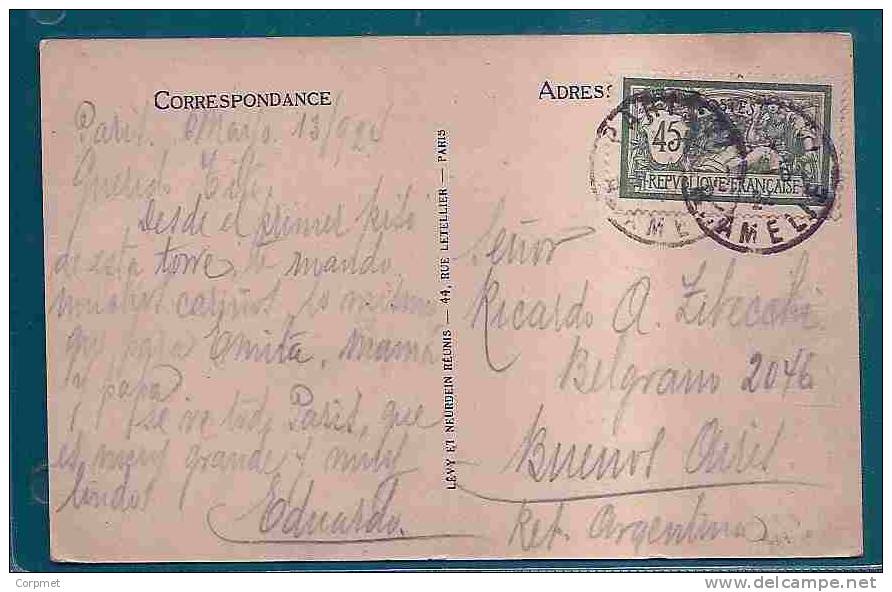 CORRESPONDANCE
Paris. Marzo 13/924
Querido Titi,
Desde el primer piso
de esta torre, te mando
muchos cariños, lo mismo
que para Emita, mamá
y papá
Se ve todo París, que
es muy grande y muy
lindo
Eduardo.
LÉVY ET NEURDEIN RÉUNIS — 44, RUE LETELLIER — PARIS
ADRES
POSTES
45
REPVBLIQVE FRANÇAISE
Señor
Ricardo A.
Belgrano 2046
Buenos Aires
Rep. Argentina
Corpmet
delcampe.net